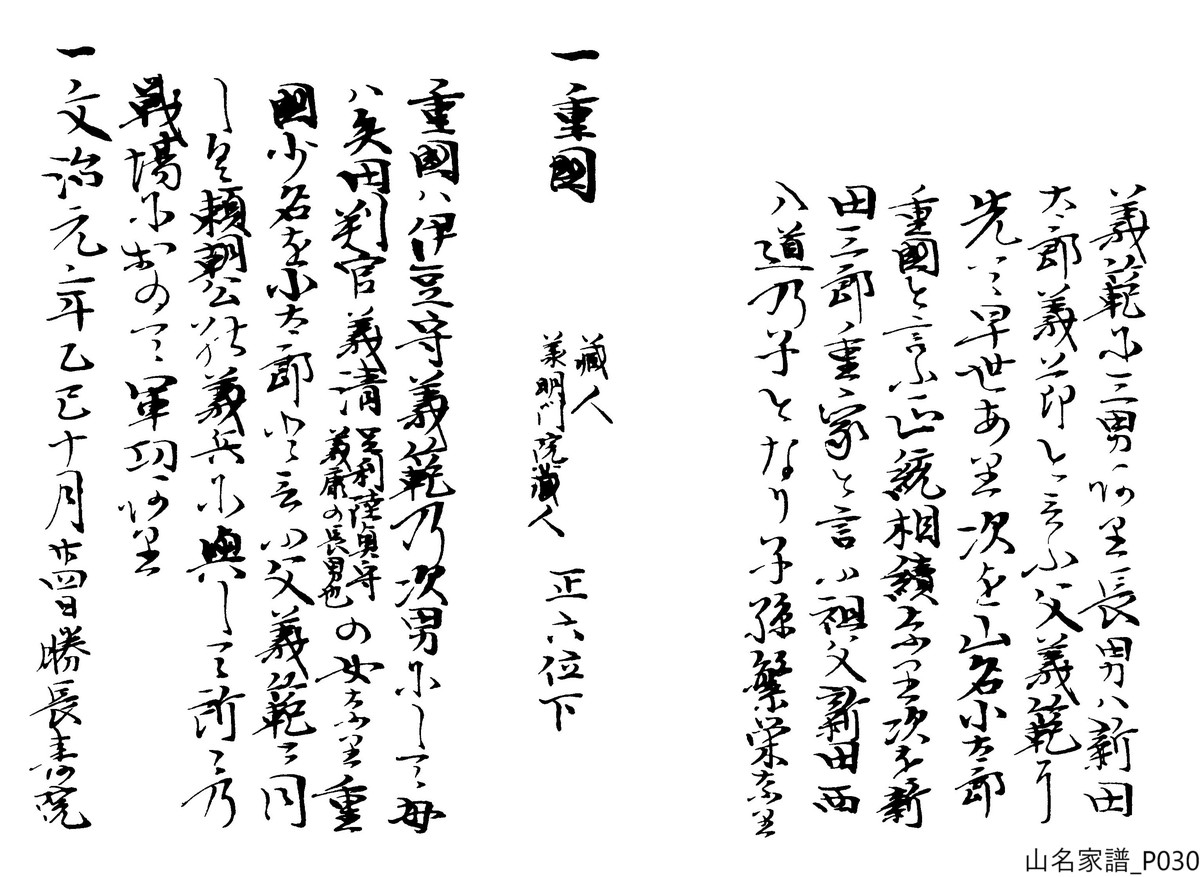 義範に三男あり長男ハ新田
太郎義節と言ふ父義範に
先て早世あり次を山名小太郎
重國と言ふ正統相續なり次を新
田三郎重家と言ふ祖父新田西
入道乃子となり子孫繁栄なり
一重國 藏人
美明門院藏人 正六位下
重國ハ伊豆守義範乃次男にして母
ハ矢田判官義清 足利陸奥守
義康の長男也 の女なり重
國少名を小太郎と言ふ父義範と同
しく頼朝公往義兵に與して所々乃
戦場におゐて軍功あり
一文治元年乙巳十月廿四日勝長壽院
山名家譜_P030